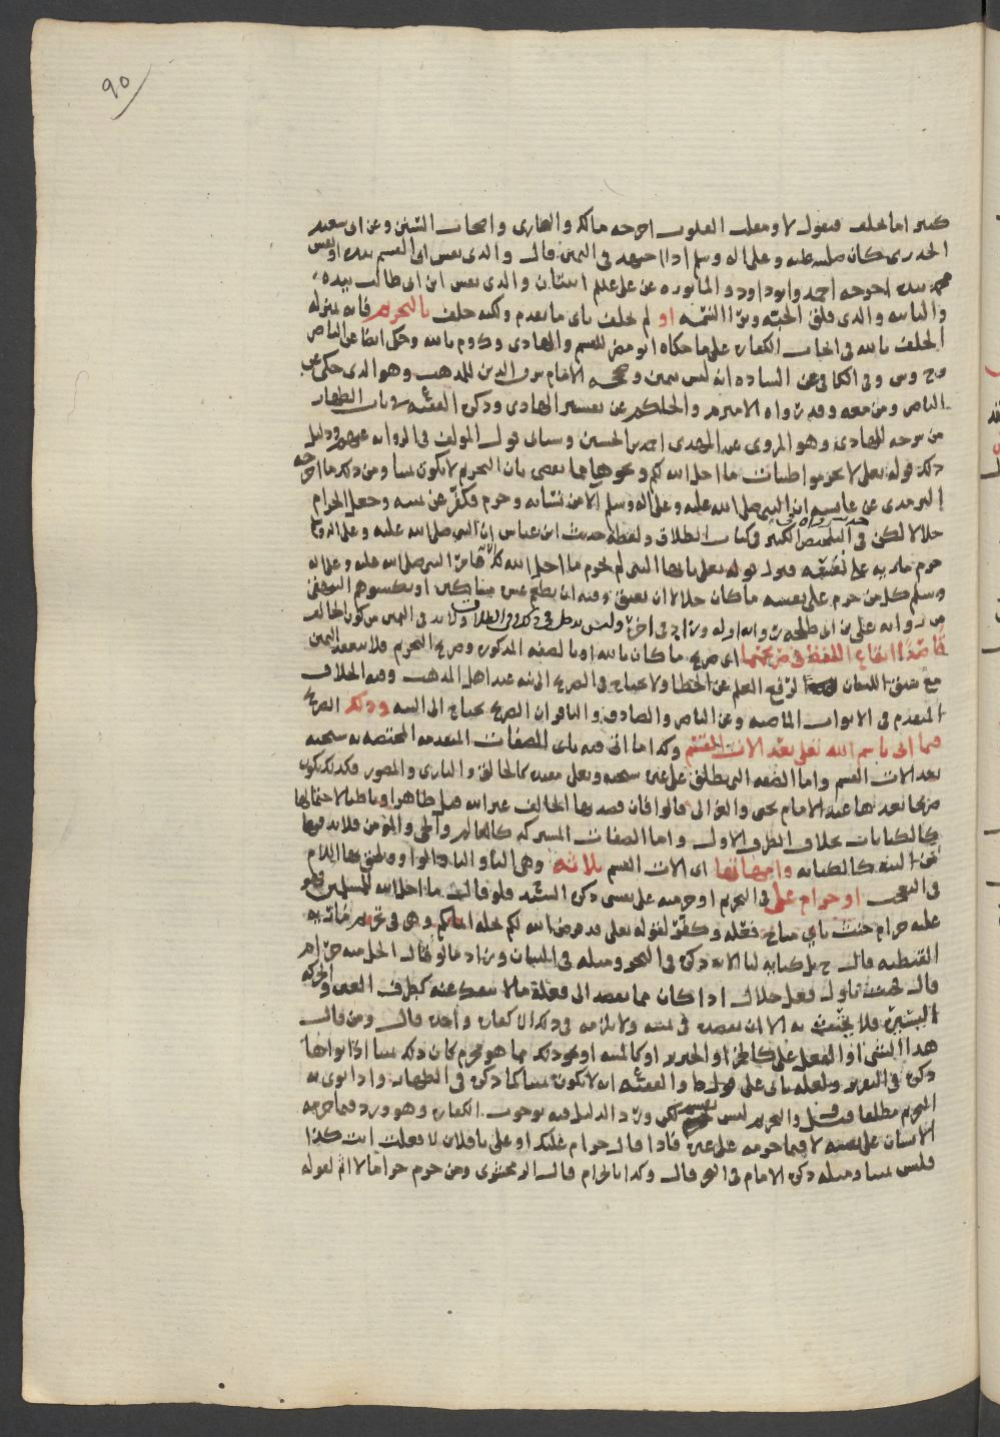 ٩٥
كثير اما يحلف فيقول لا ومقلب القلوب اخرجه مالك والبخارى واصحاب السنن وعن ابى سعيد
الخدرى كان صلى الله عليه وعلى اله وسلم اذا اجتهد فى اليمين قال والذى نفس ابى القسم بيده او نفس
محمد بيده اخرجه احمد وابو داود والماثوره عن على علم اسان والذى نفس ابن ابى طالب بيده
والثانيه والذى فلق الحبه وبرا النسمه او لم يحلف باى ما تقدم ولكنه حلف بالتحريم فانه بمنزله
الحلف بالله فى ايجاب الكفاره على ما حكاه ابو مضر للقسم والهادى وك وم بالله وحكى ايضا عن الناصر
وح وص وفى الكافى عن الساده انه ليس بيمين وصححه الامام شرف الدين للمذهب وهو الذى حكى عن
الناصر ومن معه وقد رواه الامير م والحاكم عن تفسير الهادى وذكره الفقيه س فى باب الظهار
من توجه للهادى وهو المروى عن المهدى احمد بن الحسين وسياتى قول المولف فى الروايه عنهم ودليل
ذلك قوله تعلى لا تحرموا طيبات ما احل الله لكم ونحوها مما يقضى بان التحريم لا يكون يمينا ومن ذلك ما اخرجه
الترمذى عن عايشه ان النبى صلى الله عليه وعلى اله وسلم آلا من نسائه وحرم فكفر عن يمينه وجعل الحرام
حلالا لكن فى التلخيص الكبير فى كتاب الطلاق ولفظه حديث ابن عباس ان النبى صلى الله عليه وعلى اله وسلم
حرم ماريه على نفسه فنزل قوله تعلى يا ايها النبى لم تحرم ما احل الله لك فامر النبى صلى الله عليه وعلى اله
وسلم كل من حرم على نفسه ما كان حلالا ان يعتق رقبه او يطعم عشره مساكين او يكسوهم البيهقى
من روايه على بن ابى طلحه وليس يدخل فى ذلك الطلاق ولا بد فى اليمين من كون الحالف
قاصدا ايقاع اللفظ فى صريحهما اى صريح ما كان بالله او بالصفه المذكوره وصريح التحريم فلا تنعقد اليمين
مع سبق اللسان لرفع القلم عن الخطا ولا يحتاج فى الصريح الى نيه عند اهل المذهب وفيه الخلاف
المتقدم فى الابواب الماضيه وعن الناصر والصادق والباقر ان الصريح يحتاج الى النيه وذلك الصريح
فيما اتى باسم الله تعلى بعد الات القسم وكذا ما اتى فيه باى الصفات المتقدمه المختصه به سبحنه
بعد الات القسم واما الصفه التى يطلق على غيره سبحنه وتعلى مقيده كالخالق والبارى والمصور فكذلك يكون
صريحا تعدها عند الامام يحيى والغزالى قالوا فان قصد بها الحالف غير الله قبل ظاهرا وباطنا لاحتمالها
كالكنايات بخلاف الطرف الاول واما الصفات المشتركه كالعالم والحى والمومن فلا بد فيها
من النيه كالكنايه وامهاتها اى الات القسم ثلاثه وهى الباء والتاء والواو ويلحق بها اللام
فى التعجب او حرام على فى التحريم او حرمته على نفسى ذكره السيد فلو قال ما احل الله للمسلمين فهو
عليه حرام حنث باى مباح فعله وكفر لقوله تعلى قد فرض الله لكم تحله ايمانكم وهى فى تحريم ماريه
القبطيه قال ح بل كنايه لنا الايه ذكره فى البحر ومثله فى البيان وزاد ما لو قال الحل منه حرام
قال حنث باول فعل حلال اذا كان مما يقصد الى فعله ما لا ينفك عنه كطرف العين والحركه
اليسيره فلا يحنث به الا ان يقصده فى يمينه ولا يلزمه فى ذلك الا كفاره واحده قال ومن قال
هذا الشى او الفعل على كالخمر او الخنزير او كالميته او نحو ذلك مما هو محرم كان ذلك يمينا اذا نواها
ذكره فى التقرير ولعله ياتى على قول ط والفقيه ع انه لا يكون يمينا كما ذكره فى الظهار واذا نوى به
التحريم مطلقا فقيل والتحريم ليس بقسم لكن ورد الدليل فيه بوجوب الكفاره وهو ورد فيما حرمه
الانسان على نفسه لا فيما حرمه على غيره فاذا قال حرام عليك او على يا فلان لا فعلت انت كذا
فليس يمينا ومثله ذكره الامام فى البحر قال وكذا بالحرام قال الزمخشرى ومن حرم حراما لا اثم لقوله